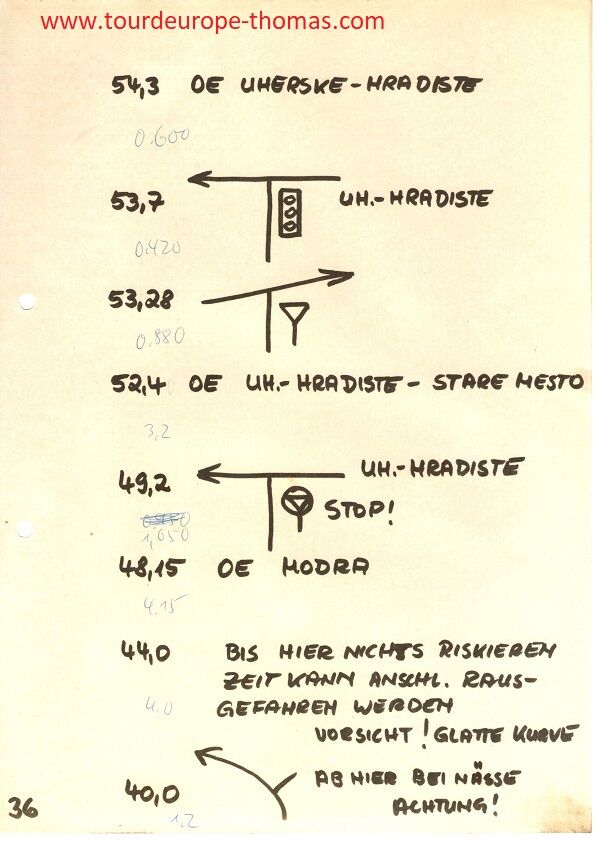 www.tourdeurope-thomas.com
54,3 OE UHERSKE-HRADISTE
0.600
53,7 UH.-HRADISTE
0.420
53,28
0.880
52,4 OE UH.-HRADISTE - STARE MESTO
3,2
49,2 UH.-HRADISTE
STOP!
1,050
48,15 OE MODRA
4.15
44,0 BIS HIER NICHTS RISKIEREN
ZEIT KANN ANSCHL. RAUS-
GEFAHREN WERDEN
VORSICHT! GLATTE KURVE
4.0
40,0 AB HIER BEI NÄSSE
ACHTUNG!
1,2
36